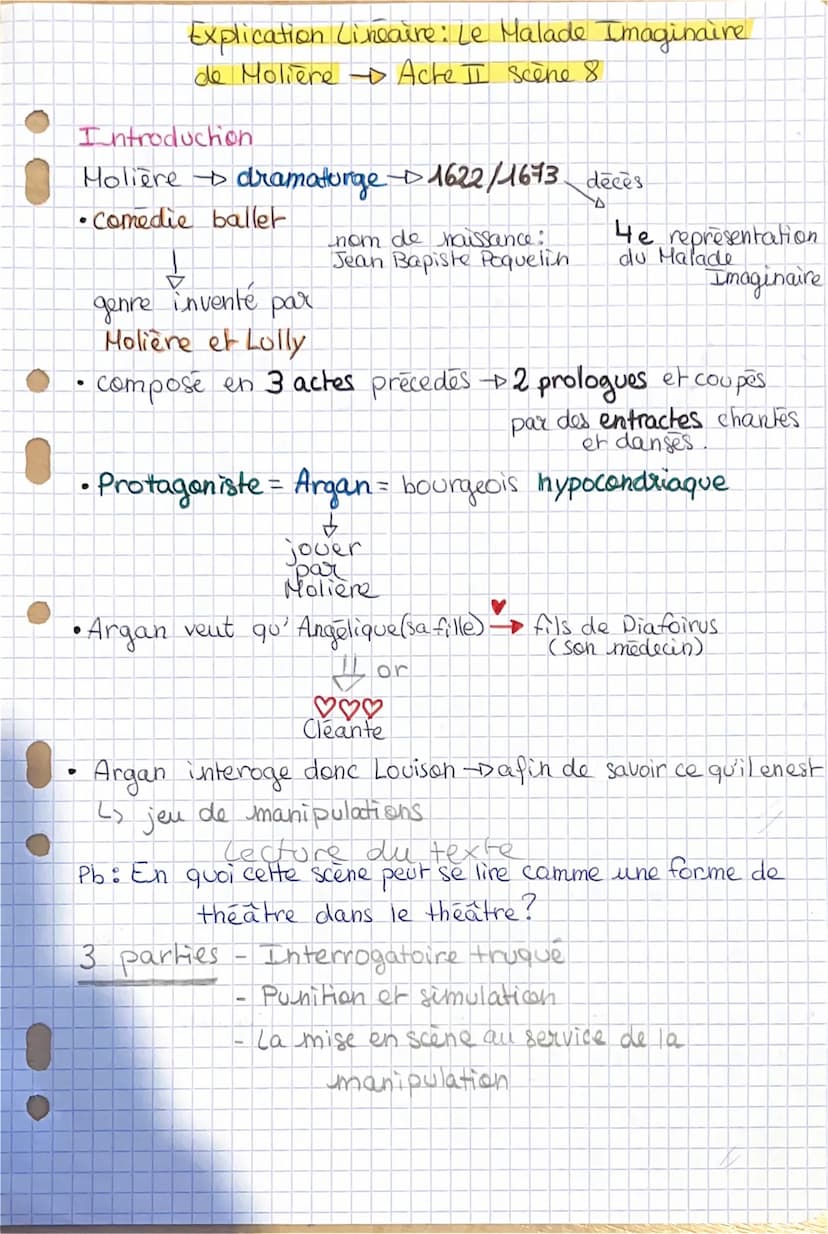 Explication Linéaire: Le Malade Imaginaire
de Molière → Acte II scène 8
Introduction
Molière → dramaturge → 1622/1673 décès
• comédie ballet
nom de naissance:
Jean Bapiste Poquelin
4e représentation
du Malade
Imaginaire
genre inventé par
Molière et Lully
• composé en 3 actes précédés → 2 prologues et coupés
par des entractes chantés
et dansés.
• Protagoniste = Argan = bourgeois hypocondriaque
jouer
par
Molière
• Argan veut qu'Angélique (sa fille) → fils de Diafoirus
(son médecin)
or
Cléante
• Argan interoge donc Louison → afin de savoir ce qu'il en est
↳ jeu de manipulations
Lecture du texte
Pb: En quoi cette scène peut se lire comme une forme de
théâtre dans le théâtre?
3 parties - Interrogatoire truqué
- Punition et simulation
- La mise en scène au service de la
manipulation